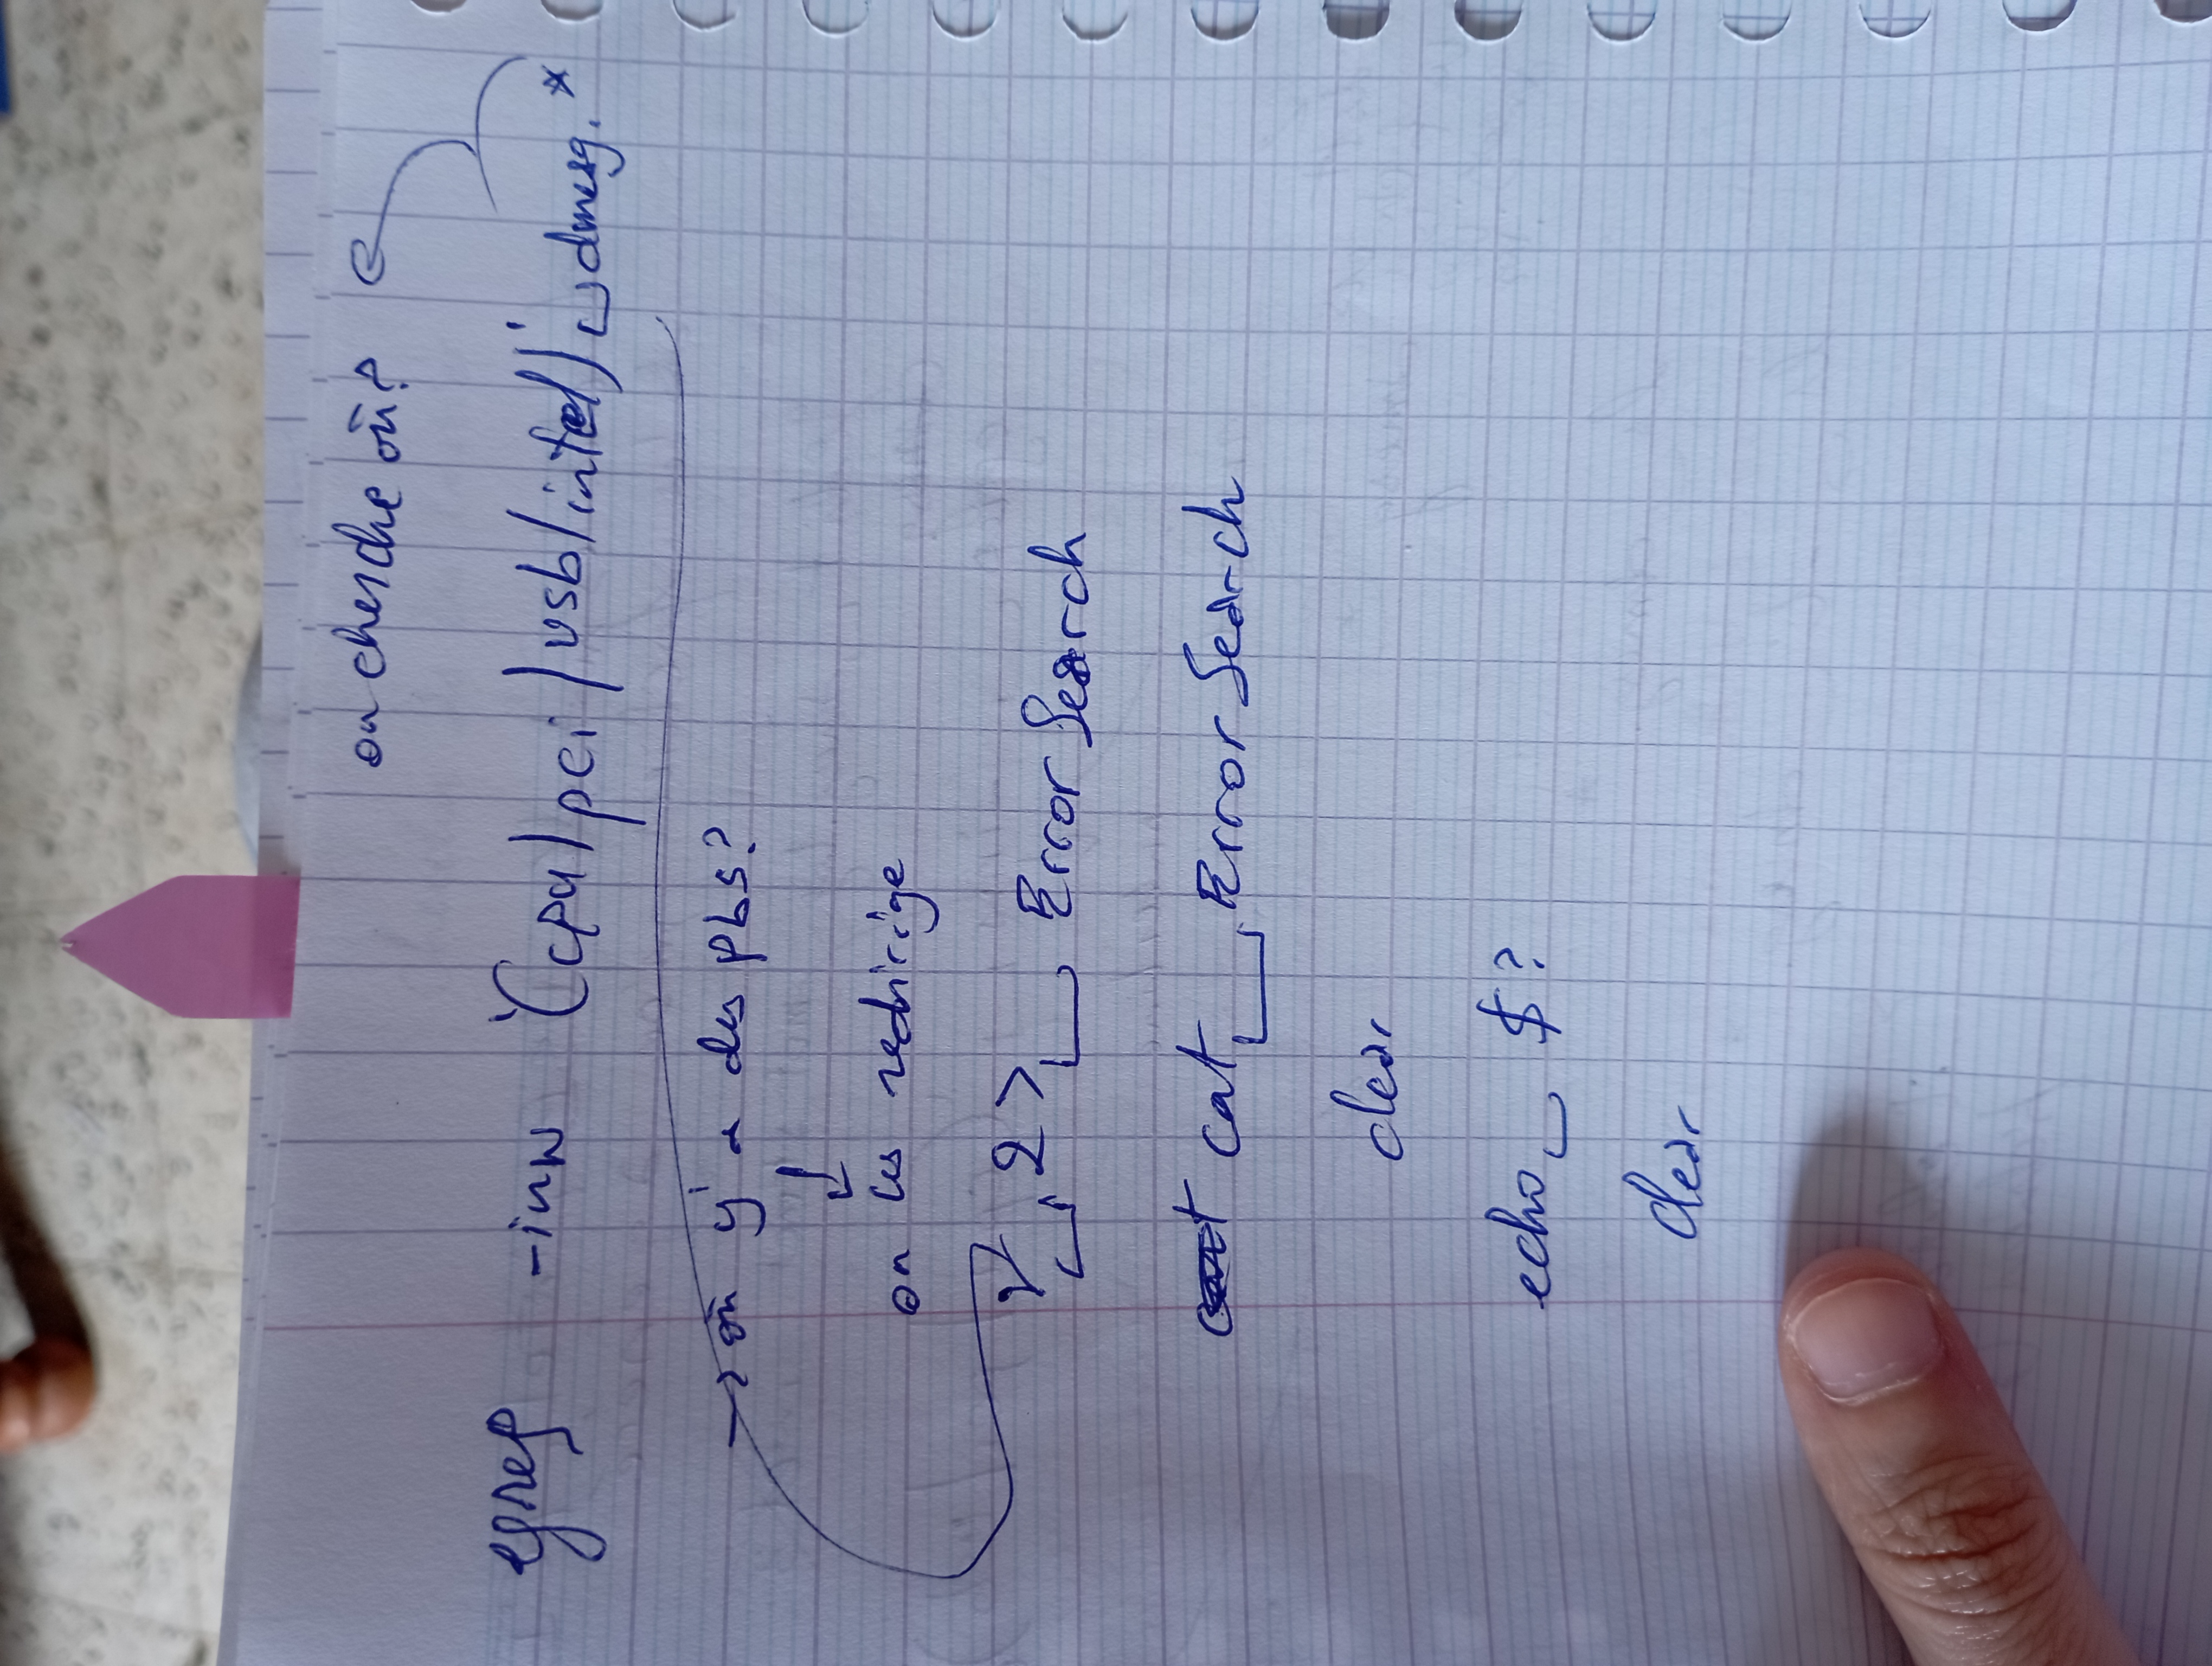 on cherche où?
egrep -inw '(cpu|pci|usb|intel)'␣dmesg.*
→ où y'a des pbs?
↓
on les redirige
␣2>␣ErrorSearch
cat␣ErrorSearch
clear
echo␣$?
clear